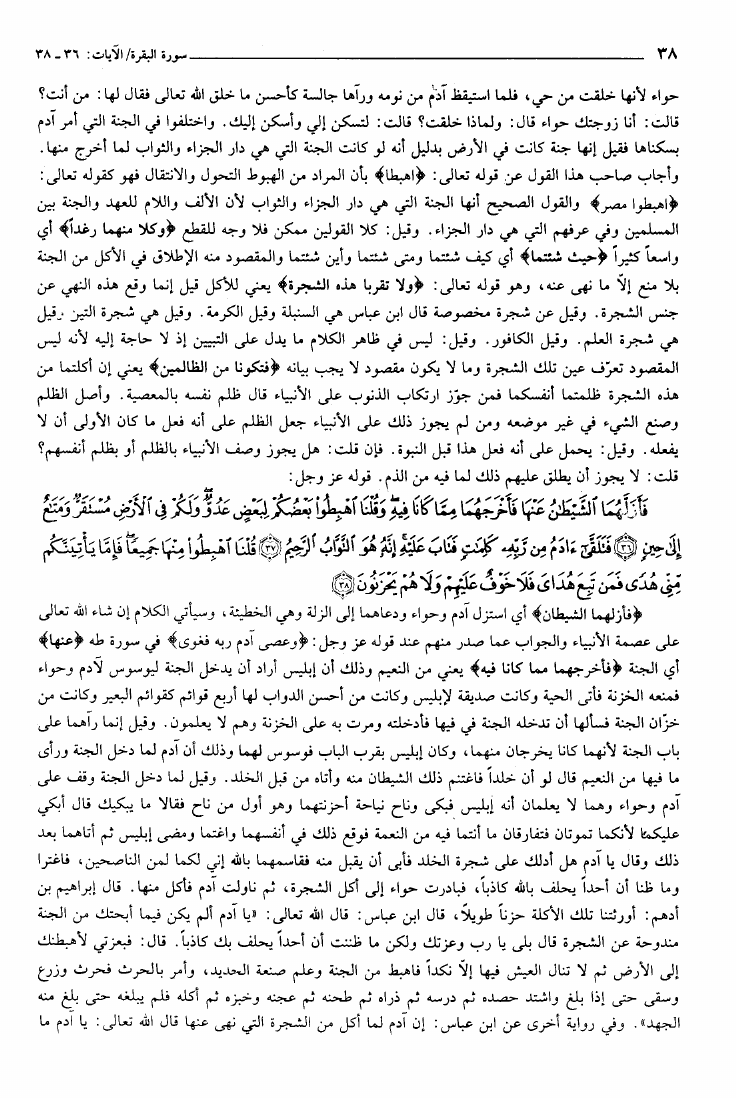 ٣٨ سورة البقرة/ الآيات: ٣٦ ـ ٣٨
حواء لأنها خلقت من حي، فلما استيقظ آدم من نومه ورآها جالسة كأحسن ما خلق الله تعالى فقال لها: من أنت؟
قالت: أنا زوجتك حواء قال: ولماذا خلقت؟ قالت: لتسكن إلي وأسكن إليك. واختلفوا في الجنة التي أمر آدم
بسكناها فقيل إنها جنة كانت في الأرض بدليل أنه لو كانت الجنة التي هي دار الجزاء والثواب لما أخرج منها.
وأجاب صاحب هذا القول عن قوله تعالى: ﴿اهبطا﴾ بأن المراد من الهبوط التحول والانتقال فهو كقوله تعالى:
﴿اهبطوا مصر﴾ والقول الصحيح أنها الجنة التي هي دار الجزاء والثواب لأن الألف واللام للعهد والجنة بين
المسلمين وفي عرفهم التي هي دار الجزاء. وقيل: كلا القولين ممكن فلا وجه للقطع ﴿وكلا منهما رغداً﴾ أي
واسعاً كثيراً ﴿حيث شئتما﴾ أي كيف شئتما ومتى شئتما وأين شئتما والمقصود منه الإطلاق في الأكل من الجنة
بلا منع إلّا ما نهى عنه، وهو قوله تعالى: ﴿ولا تقربا هذه الشجرة﴾ يعني للأكل قيل إنما وقع هذه النهي عن
جنس الشجرة. وقيل عن شجرة مخصوصة قال ابن عباس هي السنبلة وقيل الكرمة. وقيل هي شجرة التين وقيل
هي شجرة العلم. وقيل الكافور. وقيل: ليس في ظاهر الكلام ما يدل على التبيين إذ لا حاجة إليه لأنه ليس
المقصود تعرّف عين تلك الشجرة وما لا يكون مقصود لا يجب بيانه ﴿فتكونا من الظالمين﴾ يعني إن أكلتما من
هذه الشجرة ظلمتما أنفسكما فمن جوّز ارتكاب الذنوب على الأنبياء قال ظلم نفسه بالمعصية. وأصل الظلم
وصنع الشيء في غير موضعه ومن لم يجوز ذلك على الأنبياء جعل الظلم على أنه فعل ما كان الأولى أن لا
يفعله. وقيل: يحمل على أنه فعل هذا قبل النبوة. فإن قلت: هل يجوز وصف الأنبياء بالظلم أو بظلم أنفسهم؟
قلت: لا يجوز أن يطلق عليهم ذلك لما فيه من الذم. قوله عز وجل:
فَأَزَلَّهُمَا ٱلشَّيْطَٰنُ عَنْهَا فَأَخْرَجَهُمَا مِمَّا كَانَا فِيهِ وَقُلْنَا ٱهْبِطُوا۟ بَعْضُكُمْ لِبَعْضٍ عَدُوٌّ وَلَكُمْ فِى ٱلْأَرْضِ مُسْتَقَرٌّ وَمَتَٰعٌ
إِلَىٰ حِينٍ ﴿٣٦﴾ فَتَلَقَّىٰٓ ءَادَمُ مِن رَّبِّهِۦ كَلِمَٰتٍ فَتَابَ عَلَيْهِ إِنَّهُۥ هُوَ ٱلتَّوَّابُ ٱلرَّحِيمُ ﴿٣٧﴾ قُلْنَا ٱهْبِطُوا۟ مِنْهَا جَمِيعًا فَإِمَّا يَأْتِيَنَّكُم
مِّنِّى هُدًى فَمَن تَبِعَ هُدَاىَ فَلَا خَوْفٌ عَلَيْهِمْ وَلَا هُمْ يَحْزَنُونَ ﴿٣٨﴾
﴿فأزلهما الشيطان﴾ أي استزل آدم وحواء ودعاهما إلى الزلة وهي الخطيئة، وسيأتي الكلام إن شاء الله تعالى
على عصمة الأنبياء والجواب عما صدر منهم عند قوله عز وجل: ﴿وعصى آدم ربه فغوى﴾ في سورة طه ﴿عنها﴾
أي الجنة ﴿فأخرجهما مما كانا فيه﴾ يعني من النعيم وذلك أن إبليس أراد أن يدخل الجنة ليوسوس لآدم وحواء
فمنعه الخزنة فأتى الحية وكانت صديقة لإبليس وكانت من أحسن الدواب لها أربع قوائم كقوائم البعير وكانت من
خزّان الجنة فسألها أن تدخله الجنة في فيها فأدخلته ومرت به على الخزنة وهم لا يعلمون. وقيل إنما رآهما على
باب الجنة لأنهما كانا يخرجان منهما، وكان إبليس بقرب الباب فوسوس لهما وذلك أن آدم لما دخل الجنة ورأى
ما فيها من النعيم قال لو أن خلداً فاغتنم ذلك الشيطان منه وأتاه من قبل الخلد. وقيل لما دخل الجنة وقف على
آدم وحواء وهما لا يعلمان أنه إبليس فبكى وناح نياحة أحزنتهما وهو أول من ناح فقالا ما يبكيك قال أبكي
عليكما لأنكما تموتان فتفارقان ما أنتما فيه من النعمة فوقع ذلك في أنفسهما واغتما ومضى إبليس ثم أتاهما بعد
ذلك وقال يا آدم هل أدلك على شجرة الخلد فأبى أن يقبل منه فقاسمهما بالله إني لكما لمن الناصحين، فاغترا
وما ظنا أن أحداً يحلف بالله كاذباً، فبادرت حواء إلى أكل الشجرة، ثم ناولت آدم فأكل منها. قال إبراهيم بن
أدهم: أورثتنا تلك الأكلة حزناً طويلاً، قال ابن عباس: قال الله تعالى: «يا آدم ألم يكن فيما أبحتك من الجنة
مندوحة عن الشجرة قال بلى يا رب وعزتك ولكن ما ظننت أن أحداً يحلف بك كاذباً. قال: فبعزتي لأهبطنك
إلى الأرض ثم لا تنال العيش فيها إلّا نكداً فاهبط من الجنة وعلم صنعة الحديد، وأمر بالحرث فحرث وزرع
وسقى حتى إذا بلغ واشتد حصده ثم درسه ثم ذراه ثم طحنه ثم عجنه وخبزه ثم أكله فلم يبلغه حتى بلغ منه
الجهد». وفي رواية أخرى عن ابن عباس: إن آدم لما أكل من الشجرة التي نهى عنها قال الله تعالى: يا آدم ما